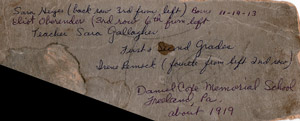 Sara Heiges (back row 3rd from left) Born 11-19-13
Eliot Oberender (2nd row 6th from left
Teacher Sara Gallagher
First & Second Grades
Irene (fourth from left 2nd row)
Daniel Coxe Memorial School
Freeland, Pa.
about 1919